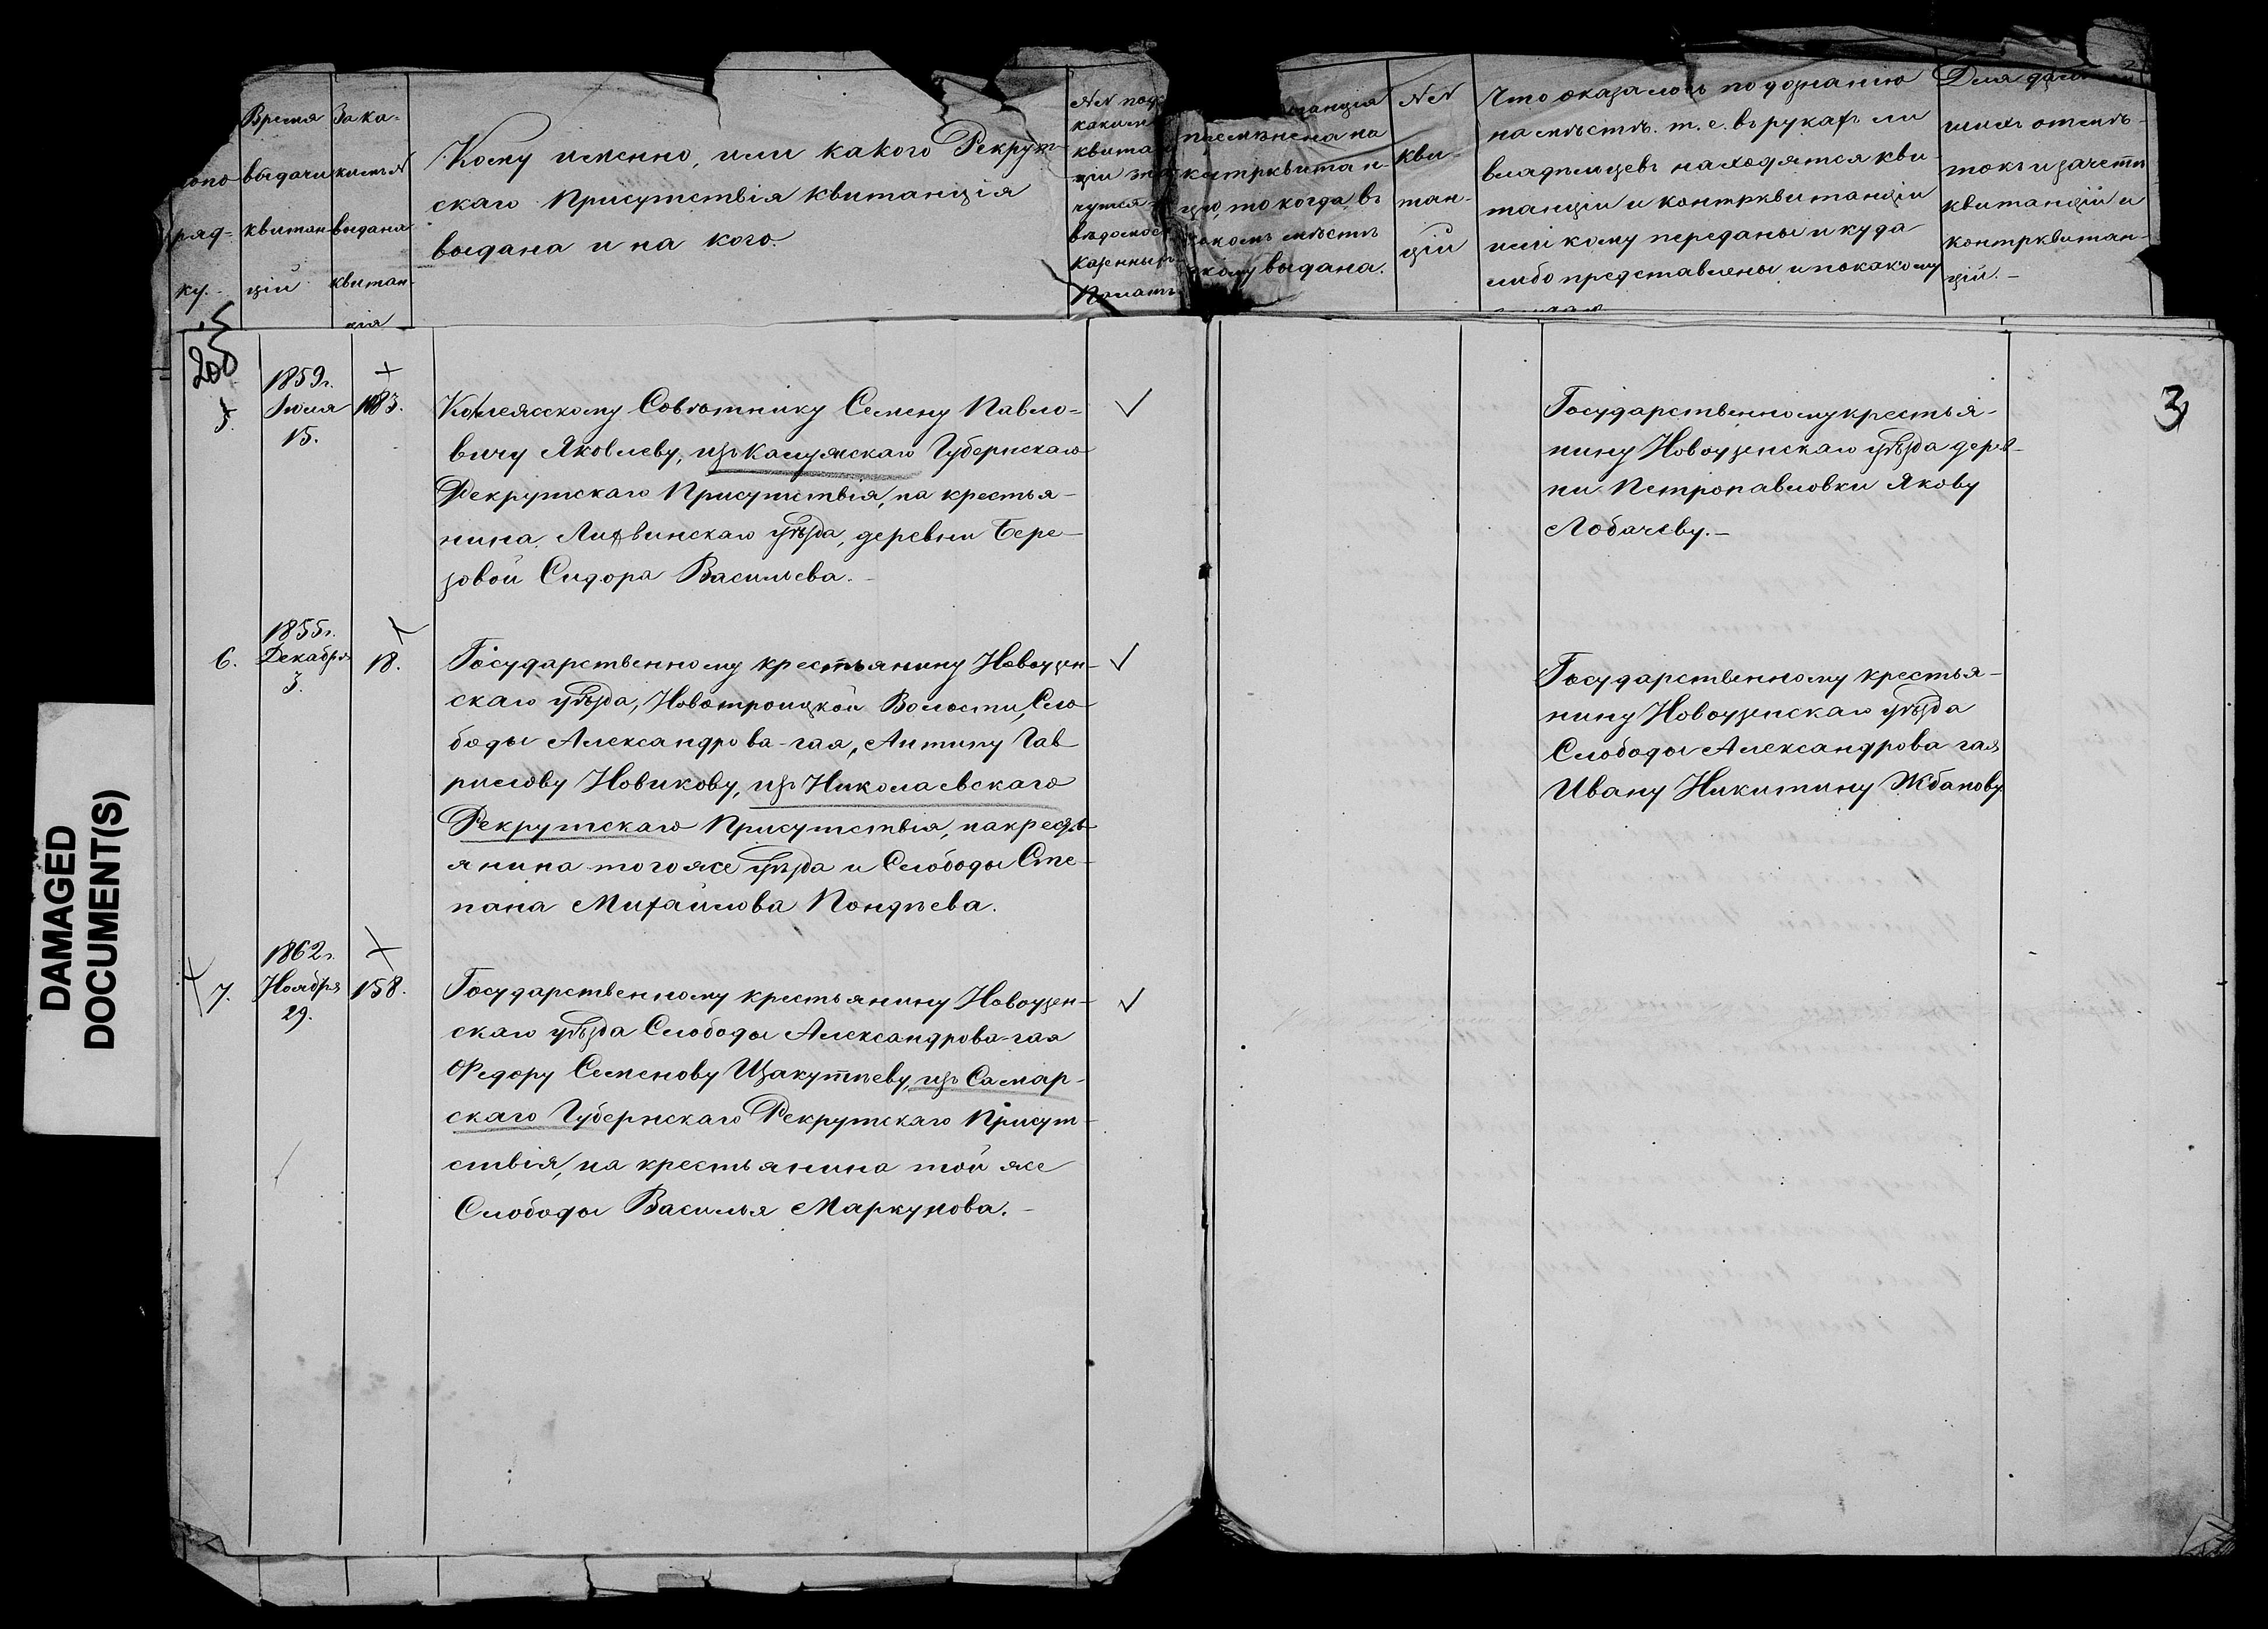 DAMAGED
DOCUMENT(S)
по
ряд-
ку.
Время
выдачи
квитан
цій
За ка-
кимъ №
выдана
квитан-
ція
Кому именно, или какого Рекрут-
скаго Присутствія квитанція
выдана и на кого.
№№ подъ
какими
квитан
ціи
чутся
вѣдомост
казенныхъ
Палатъ
анція
ремѣнена на
контрквитан-
цію, то когда, въ
какомъ мѣстѣ
кому выдана.
№№
кви-
тан-
цій
Что оказалось по дознанію
на мѣстѣ. т. е. въ рукахъ ли
владѣльцевъ находятся кви-
танціи и контрквитанціи
или кому переданы и куда
либо представлены и по какому
Для
шихъ отмѣ-
токъ и зачетѣ
квитанцій и
контрквитан-
цій.-
205
3
5.
1859г.
Іюля
15.
183.
Коллежскому Совѣтнику Семену Павло-
вичу Яковлеву, изъ Калужскаго Губернскаго
Рекрутскаго Присутствія, на крестья-
нина Лихвинскаго уѣзда, деревни Бере-
зовой Сидора Васильева.-
Государственному крестья-
нину Новоузенскаго уѣзда дерев-
ни Петропавловки Якову
Лобачеву.-
6.
1855г.
Декабря
3.
18.
Государственному крестьянину Новоузен-
скаго уѣзда, Новотроицкой Волости, Сло-
боды Александрова-гая, Антипу Гав
рилову Новикову, изъ Николаевскаго
Рекрутскаго Присутствія, на кресть-
янина того же уѣзда и Слободы Сте-
пана Михайлова Пондѣева.
Государственному крестья-
нину Новоузенскаго уѣзда
Слободы Александрова гая
Ивану Никитину Жбанову
7.
1862г.
Ноября
29.
158.
Государственному крестьянину Новоузен-
скаго уѣзда Слободы Александрова-гая
Федору Семенову Щакутѣеву, изъ Самар-
скаго Губернскаго Рекрутскаго Присут-
ствія, на крестьянина той же
Слободы Василья Маркунова.-